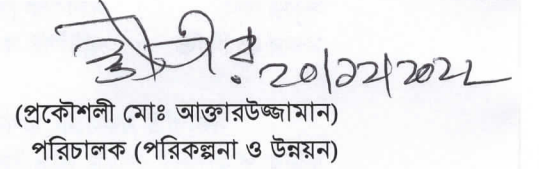 ২০/১২/২০২২
(প্রকৌশলী মোঃ আক্তারউজ্জামান)
পরিচালক (পরিকল্পনা ও উন্নয়ন)